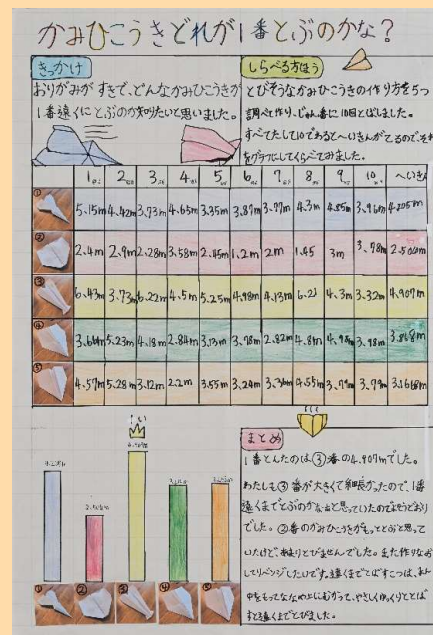 かみひこうきどれが1番とぶのかな?
きっかけ
おりがみがすきで、どんなかみひこうきが
1番遠くにとぶのか知りたいと思いました。
しらべる方ほう
とびそうなかみひこうきの作り方を5つ
調べて作り、じゅん番に10回とばしました。
すべてたして10でわるとへいきんがでるので、それ
をグラフにしてくらべてみました。
1回目 2回目 3回目 4回目 5回目 6回目 7回目 8回目 9回目 10回目 へいきん
① 5.15m 4.42m 3.73m 4.65m 3.35m 3.87m 3.77m 4.3m 4.85m 3.96m
② 2.4m 2.9m 2.28m 3.58m 2.45m 1.2m 2m 1.45 3m 3.78m
③ 6.43m 3.73m 6.22m 4.5m 5.25m 4.98m 4.13m 4.3m 3.32m 4.907m
④ 3.66m 5.23m 4.18m 2.84m 3.13m 3.98m 2.82m 4.8m 3.98m 3.868m
⑤ 4.57m 5.28m 3.12m 2.2m 3.55m 3.24m 3.36m 4.55m 3.79m 3.79m
① ② ③ ④ ⑤
まとめ
1番とんだのは③番の4.907mでした。
わたしも③番が大きくて細長かったので、1番
遠くまでとぶのかなぁと思っていたのでよそうどおり
でした。②番のかみひこうきがもっととぶと思って
いたけど、あまりとびませんでした。また作りなお
してリベンジしたいです。遠くまでとばすこつは、まん
中をもってななめ上にむかって、やさしくゆっくりととば
すと遠くまでとびました。